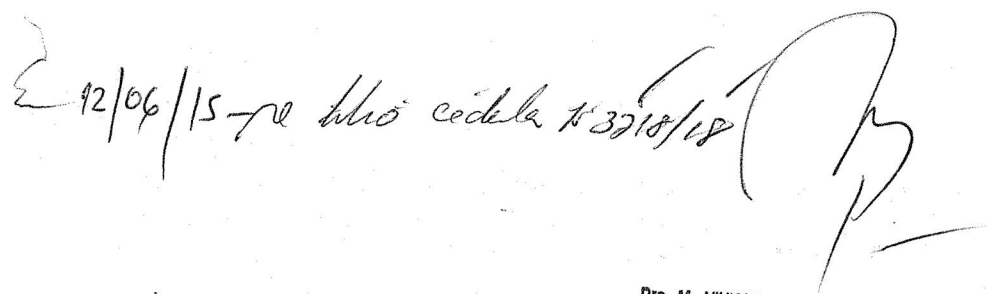 E 12/06/15 se libró cédula N° 3218/18
Dra. M.